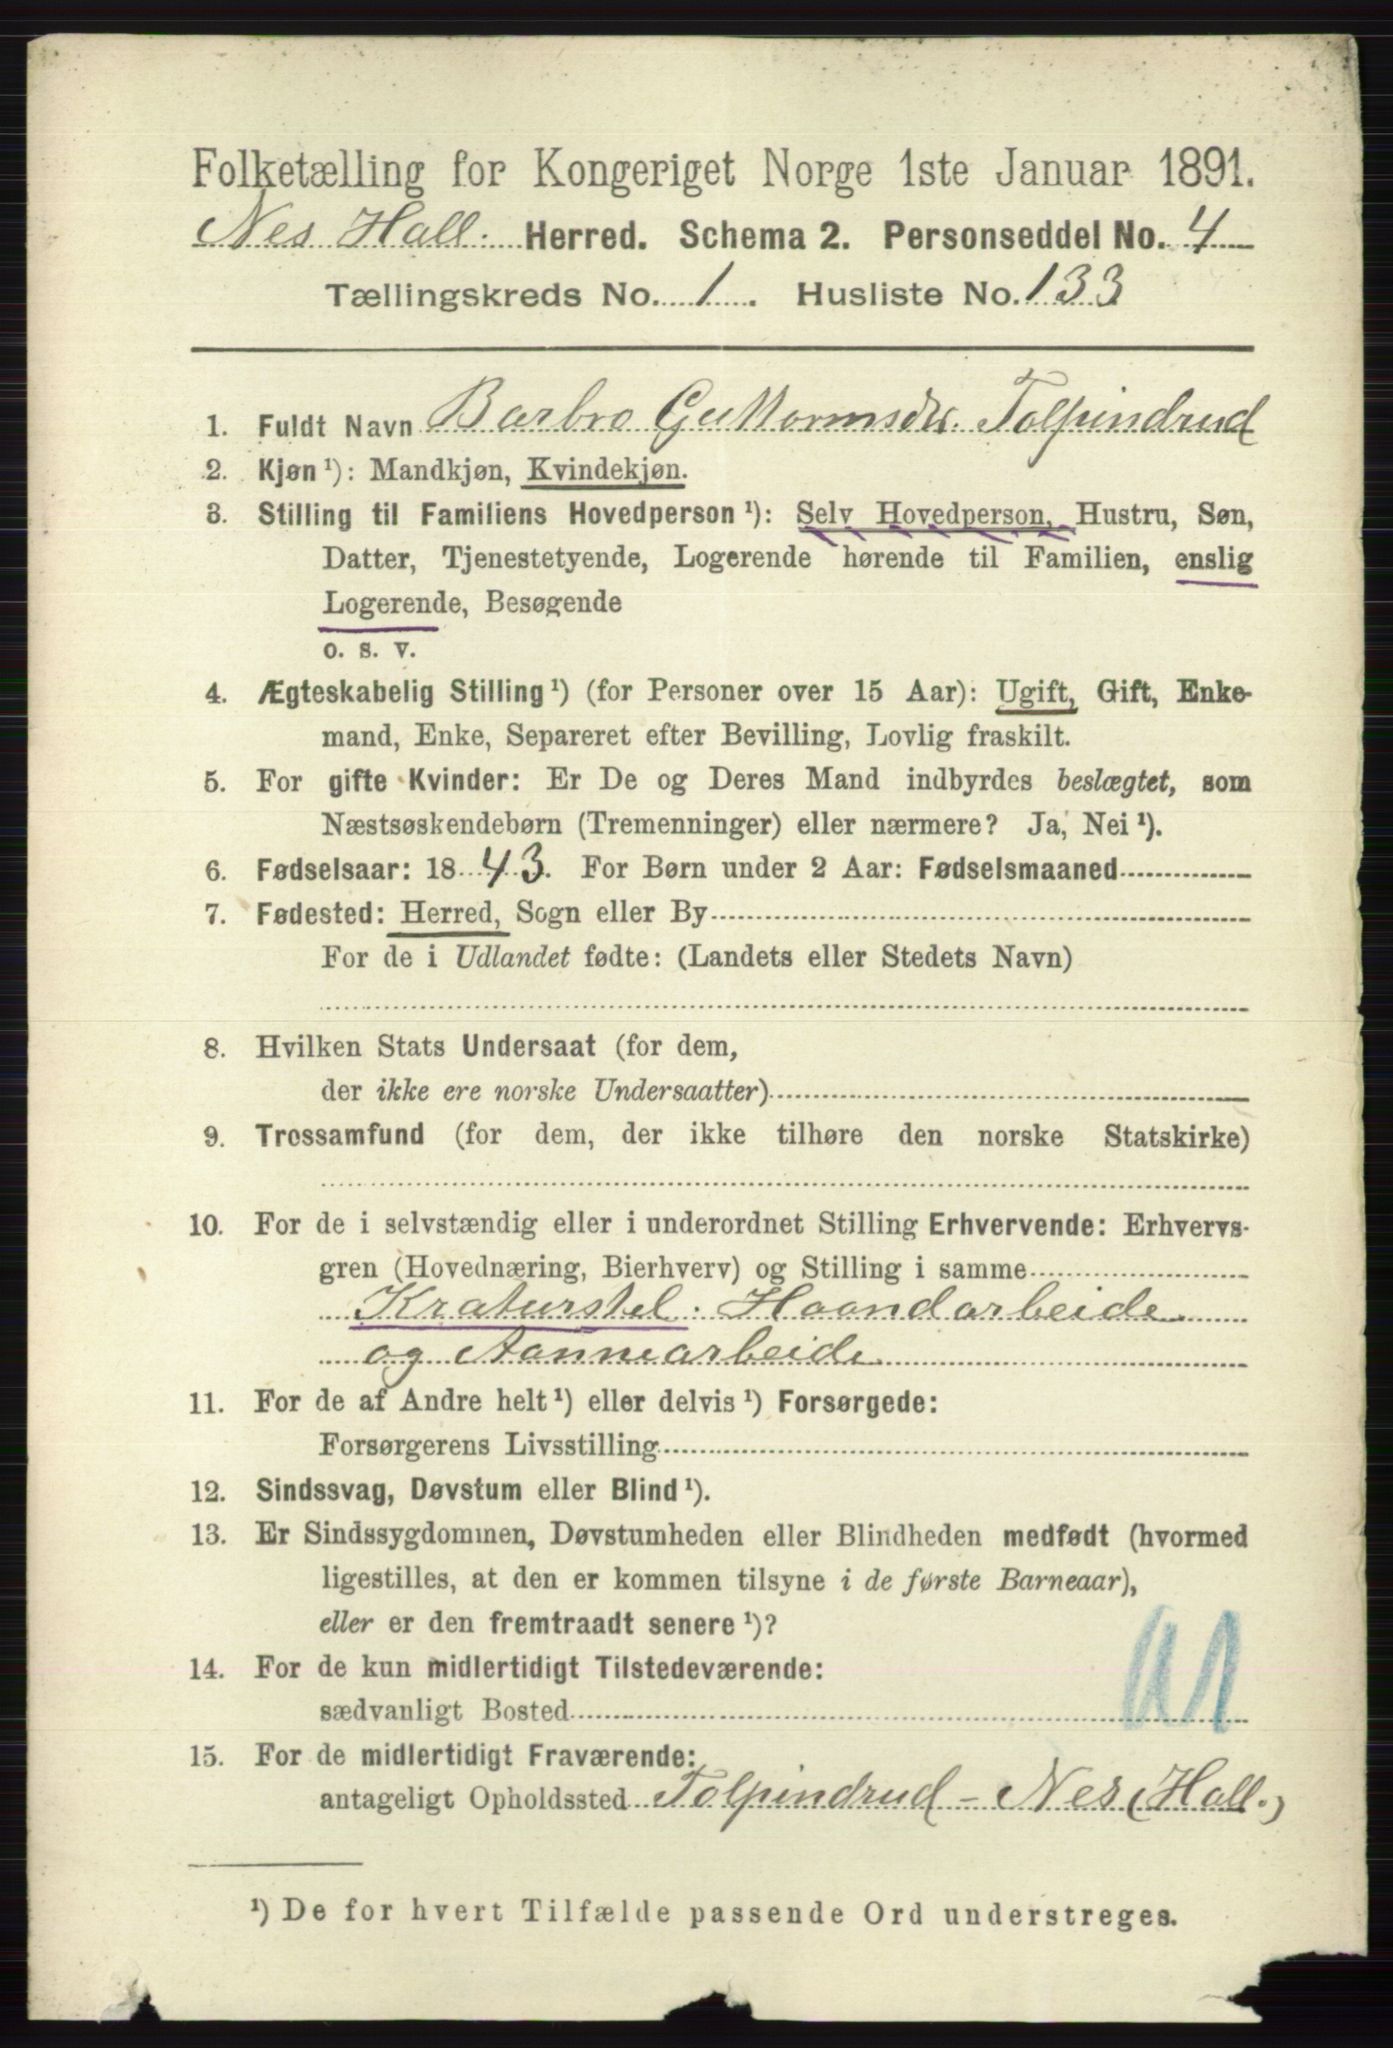 Folketælling for Kongeriget Norge 1ste Januar 1891.
Nes Hall. Herred. Schema 2. Personseddel No. 4
Tællingskreds No. 1. Husliste No. 133
1. Fuldt Navn Barbro Guttormsdtr. Tolpindrud
2. Kjøn ¹): Mandkjøn, Kvindekjøn.
3. Stilling til Familiens Hovedperson ¹): Selv Hovedperson, Hustru, Søn,
Datter, Tjenestetyende, Logerende hørende til Familien, enslig
Logerende, Besøgende
o. s. v.
4. Ægteskabelig Stilling ¹) (for Personer over 15 Aar): Ugift, Gift, Enke-
mand, Enke, Separeret efter Bevilling, Lovlig fraskilt.
5. For gifte Kvinder: Er De og Deres Mand indbyrdes beslægtet, som
Næstsøskendebørn (Tremenninger) eller nærmere? Ja, Nei ¹).
6. Fødselsaar: 1843. For Børn under 2 Aar: Fødselsmaaned
7. Fødested: Herred, Sogn eller By
For de i Udlandet fødte: (Landets eller Stedets Navn)
8. Hvilken Stats Undersaat (for dem,
der ikke ere norske Undersaatter)
9. Trossamfund (for dem, der ikke tilhøre den norske Statskirke)
10. For de i selvstændig eller i underordnet Stilling Erhvervende: Erhvervs-
gren (Hovednæring, Bierhverv) og Stilling i samme
Kraturstel. Haandarbeide
og Aannearbeide
11. For de af Andre helt ¹) eller delvis ¹) Forsørgede:
Forsørgerens Livsstilling
12. Sindssvag, Døvstum eller Blind ¹).
13. Er Sindssygdommen, Døvstumheden eller Blindheden medfødt (hvormed
ligestilles, at den er kommen tilsyne i de første Barneaar),
eller er den fremtraadt senere ¹)?
14. For de kun midlertidigt Tilstedeværende:
sædvanligt Bosted
15. For de midlertidigt Fraværende:
antageligt Opholdssted Tolpindrud - Nes (Hall.)
¹) De for hvert Tilfælde passende Ord understreges.